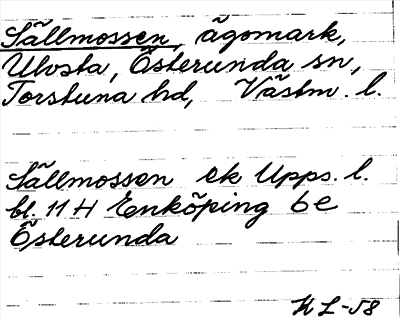 Sällmossen, ägomark,
Ulvsta, Österunda sn,
Torstuna hd, Västm. l.
Sällmossen ek Upps. l.
bl. 11 H Enköping 6 e
Österunda
K L-58